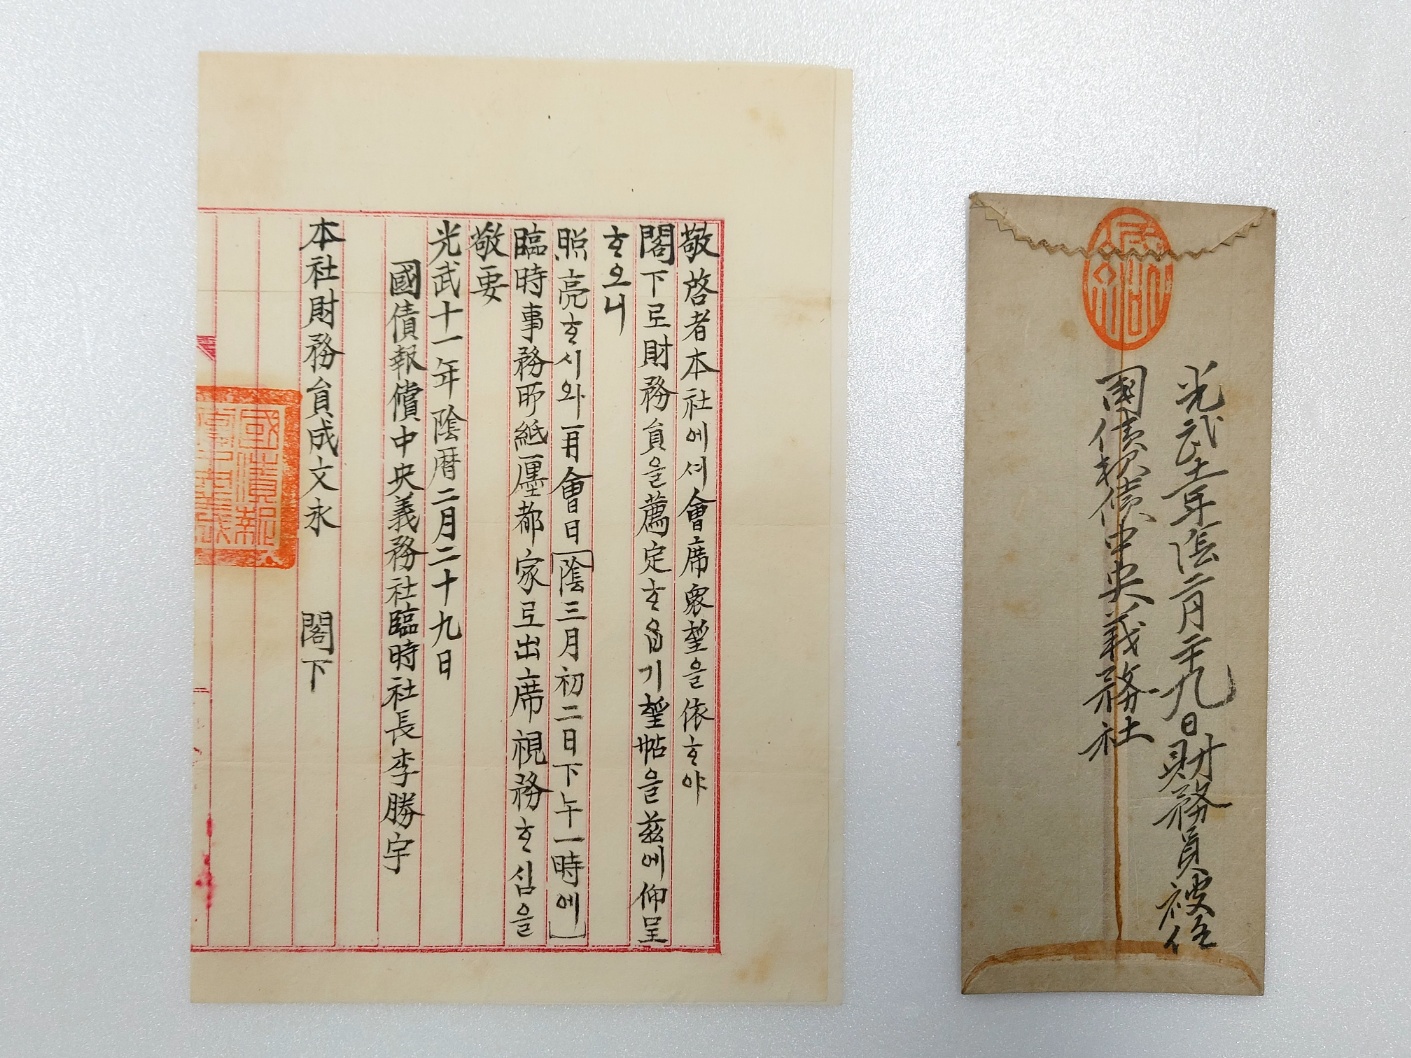 敬啓者本社에셔會席衆望을依ᄒᆞ야
閣下로財務員을薦定ᄒᆞᄋᆞᆸ기望帖을玆에仰呈
ᄒᆞ오니
照亮ᄒᆞ시와一再會日[陰三月初二日下午一時에]
臨時事務所紙廛都家로出席視務ᄒᆞ심을
敬要
光武十一年陰曆二月二十九日
國債報償中央義務社臨時社長李勝宇
本社財務員成文永 閣下
光武十一年陰二月二十九日財務員被任
国债報償中央義務社